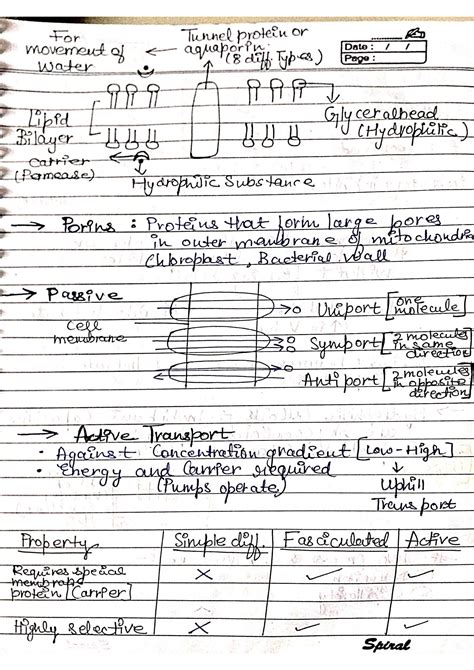 For movement of Water
Tunnel protein or aquaporin
(8 diff Types)
Date : / /
Page :
Lipid Bilayer
Glyceralhead (Hydrophilic)
Carrier (Permease)
Hydrophilic Substance
→ Porins : Proteins that form large pores
in outer membrane of mitochondria
Chloroplast, Bacterial wall
→ Passive
Cell membrane
Uniport [one molecule]
Symport [2 molecules in same direction]
Antiport [2 molecules in opposite direction]
→ Active Transport
• Against Concentration gradient [Low-High]
• Energy and Carrier required
(Pumps operate)
Uphill
Transport
Property | Simple diff. | Fasciculated | Active
Requires special membrane protein [Carrier] × ✓ ✓
Highly selective × ✓ ✓
Spiral